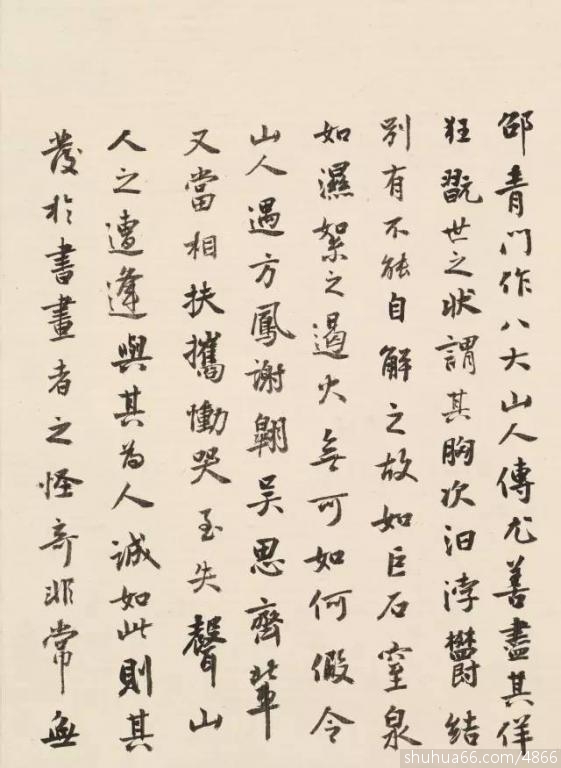 邵青门作八大山人傳尤善盡其佯
狂翫世之狀謂其胸次汩浡鬱結
別有不能自解之故如巨石窒泉
如濕絮之遏火無可如何假令
山人遇方鳳謝翱吳思齊輩
又當相扶攜慟哭至失聲山
人之遭逢與其為人誠如此則其
發於書畫者之怪奇非常無
shuhua66.com/4866